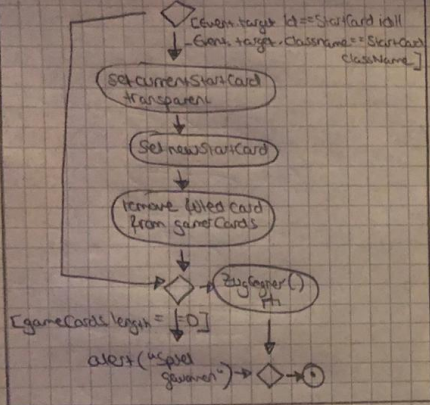 [Event.target.id==StartCard.id||
Event.target.classname==StartCard
className]
Set currentStartCard
transparent
Set newStartCard
remove
card
from gamerCards
ZugGegner()
[gameCards.length==0]
alert("Spiel
gewonnen")